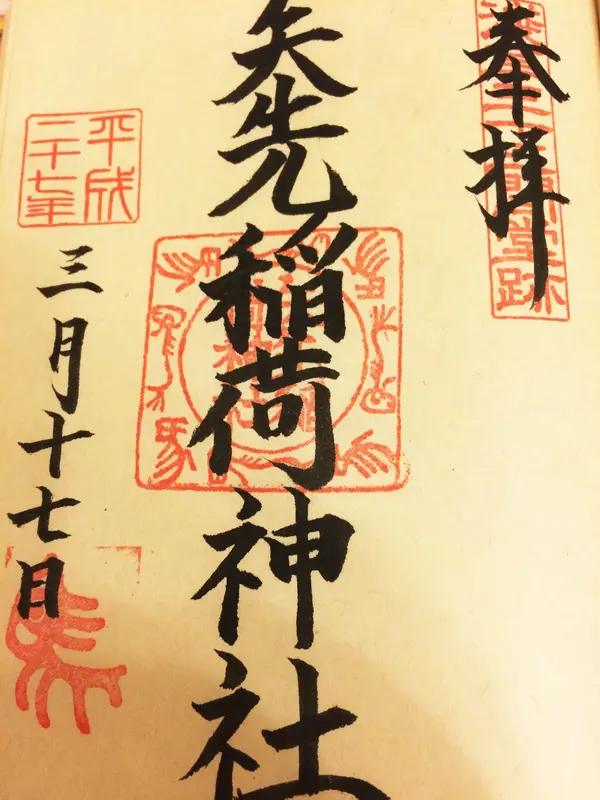 奉拝
堂跡
矢先稲荷神社
平成
二十七年
三月十七日